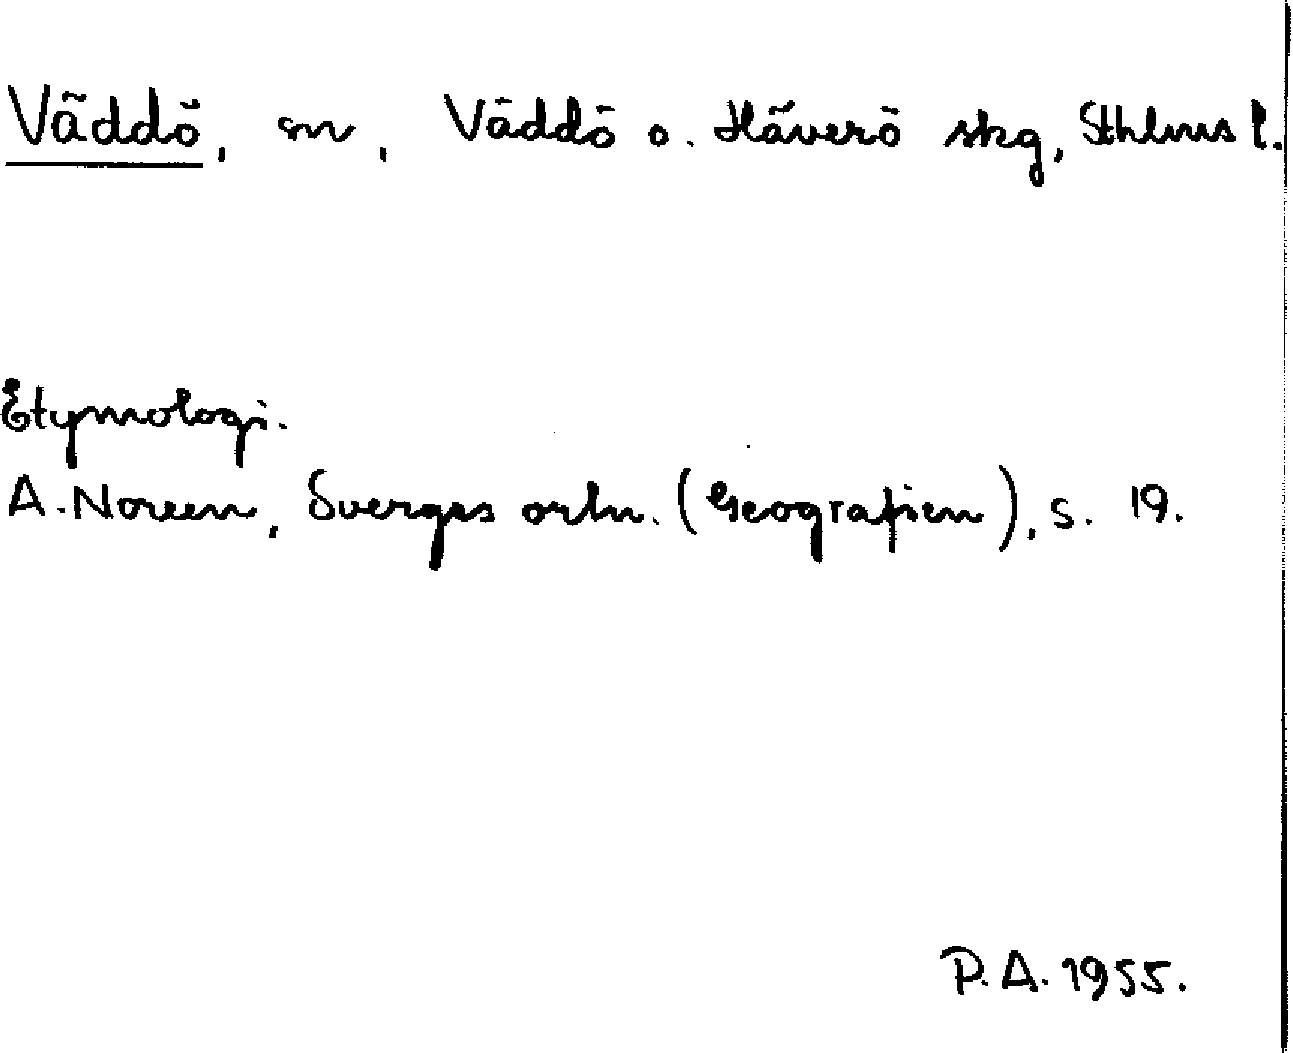 Väddö, sn, Väddö o. Häverö skg, Sthlms l.
Etymologi.
A. Noreen, Sverges ortn. (Geografien), s. 19.
P. A. 1955.